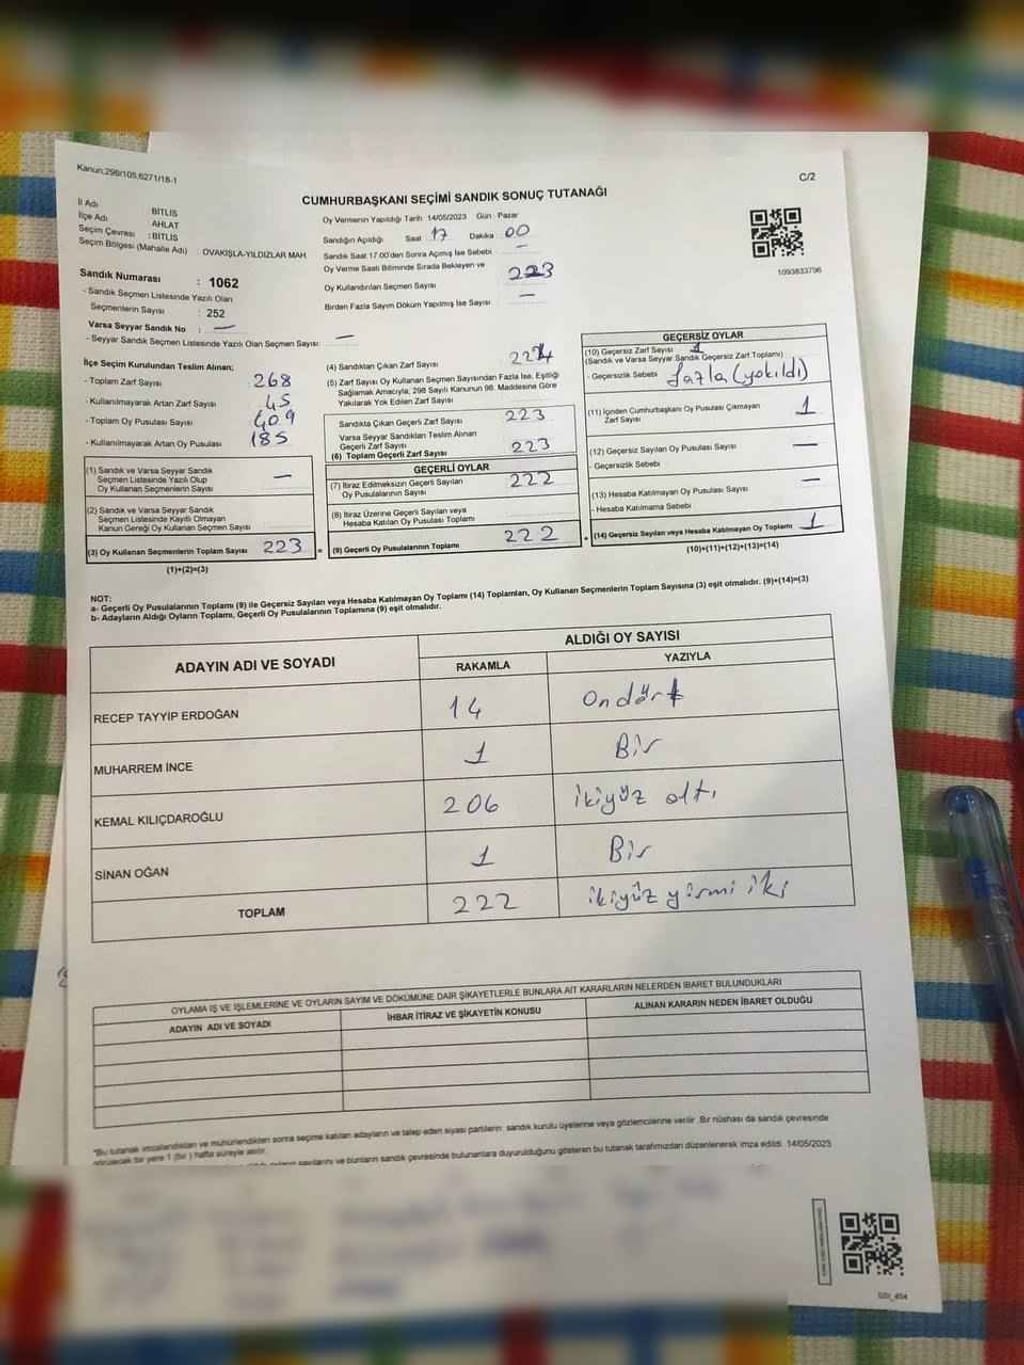 Kanun;298/105,6271/18-1
C/2
CUMHURBAŞKANI SEÇİMİ SANDIK SONUÇ TUTANAĞI
İl Adı BİTLİS
İlçe Adı AHLAT
Seçim Çevresi : BİTLİS
Seçim Bölgesi (Mahalle Adı) : OVAKIŞLA-YILDIZLAR MAH.
Sandık Numarası : 1062
- Sandık Seçmen Listesinde Yazılı Olan
Seçmenlerin Sayısı : 252
Varsa Seyyar Sandık No : —
- Seyyar Sandık Seçmen Listesinde Yazılı Olan Seçmen Sayısı: —
Oy Vermenin Yapıldığı Tarih 14/05/2023 Gün Pazar
Sandığın Açıldığı Saat 17 Dakika 00
Sandık Saat 17.00'den Sonra Açımış İse Sebebi —
Oy Verme Saati Bitiminde Sırada Bekleyen ve
Oy Kullandırılan Seçmen Sayısı 223
Birden Fazla Sayım Döküm Yapılmış İse Sayısı —
1093833796
İlçe Seçim Kurulundan Teslim Alınan;
- Toplam Zarf Sayısı 268
- Kullanılmayarak Artan Zarf Sayısı 45
- Toplam Oy Pusulası Sayısı 409
- Kullanılmayarak Artan Oy Pusulası 185
(1) Sandık ve Varsa Seyyar Sandık
Seçmen Listesinde Yazılı Olup
Oy Kullanan Seçmenlerin Sayısı —
(2) Sandık ve Varsa Seyyar Sandık
Seçmen Listesinde Kayıtlı Olmayan
Kanun Gereği Oy Kullanan Seçmen Sayısı
(3) Oy Kullanan Seçmenlerin Toplam Sayısı 223 =
(1)+(2)=(3)
(4) Sandıktan Çıkan Zarf Sayısı 224
(5) Zarf Sayısı Oy Kullanan Seçmen Sayısından Fazla İse, Eşitliği
Sağlamak Amacıyla, 298 Sayılı Kanunun 98. Maddesine Göre
Yakılarak Yok Edilen Zarf Sayısı
Sandıkta Çıkan Geçerli Zarf Sayısı 223
Varsa Seyyar Sandıktan Teslim Alınan
Geçerli Zarf Sayısı
(6) Toplam Geçerli Zarf Sayısı 223
GEÇERLİ OYLAR
(7) İtiraz Edilmeksizin Geçerli Sayılan
Oy Pusulalarının Sayısı 222
(8) İtiraz Üzerine Geçerli Sayılan veya
Hesaba Katılan Oy Pusulası Toplamı
(9) Geçerli Oy Pusulalarının Toplamı 222 +
GEÇERSİZ OYLAR
(10) Geçersiz Zarf Sayısı 1
(Sandık ve Varsa Seyyar Sandık Geçersiz Zarf Toplamı)
- Geçersizlik Sebebi fazla (yakıldı)
(11) İçinden Cumhurbaşkanı Oy Pusulası Çıkmayan
Zarf Sayısı 1
(12) Geçersiz Sayılan Oy Pusulası Sayısı —
- Geçersizlik Sebebi
(13) Hesaba Katılmayan Oy Pusulası Sayısı —
- Hesaba Katılmama Sebebi
(14) Geçersiz Sayılan veya Hesaba Katılmayan Oy Toplamı 1
(10)+(11)+(12)+(13)=(14)
NOT:
a- Geçerli Oy Pusulalarının Toplamı (9) ile Geçersiz Sayılan veya Hesaba Katılmayan Oy Toplamı (14) Toplamları, Oy Kullanan Seçmenlerin Toplam Sayısına (3) eşit olmalıdır. (9)+(14)=(3)
b- Adayların Aldığı Oyların Toplamı, Geçerli Oy Pusulalarının Toplamına (9) eşit olmalıdır.
ADAYIN ADI VE SOYADI ALDIĞI OY SAYISI
RAKAMLA YAZIYLA
RECEP TAYYİP ERDOĞAN 14 Ondört
MUHARREM İNCE 1 Bir
KEMAL KILIÇDAROĞLU 206 ikiyüz altı
SİNAN OĞAN 1 Bir
TOPLAM 222 ikiyüz yirmi iki
OYLAMA İŞ VE İŞLEMLERİNE VE OYLARIN SAYIM VE DÖKÜMÜNE DAİR ŞİKAYETLERLE BUNLARA AİT KARARLARIN NELERDEN İBARET BULUNDUKLARI
ADAYIN ADI VE SOYADI İHBAR İTİRAZ VE ŞİKAYETİN KONUSU ALINAN KARARIN NEDEN İBARET OLDUĞU
"Bu tutanak imzalandıktan ve mühürlendikten sonra seçime katılan adayların ve talep eden siyasi partilerin sandık kurulu üyelerine veya gözlemcilerine verilir. Bir nüshası da sandık çevresinde
görülecek bir yere 1 (bir) hafta süreyle asılır.
sayılarını ve bunların sandık çevresinde bulunanlara duyurulduğunu gösteren bu tutanak tarafımızdan düzenlenerek imza edildi. 14/05/2023